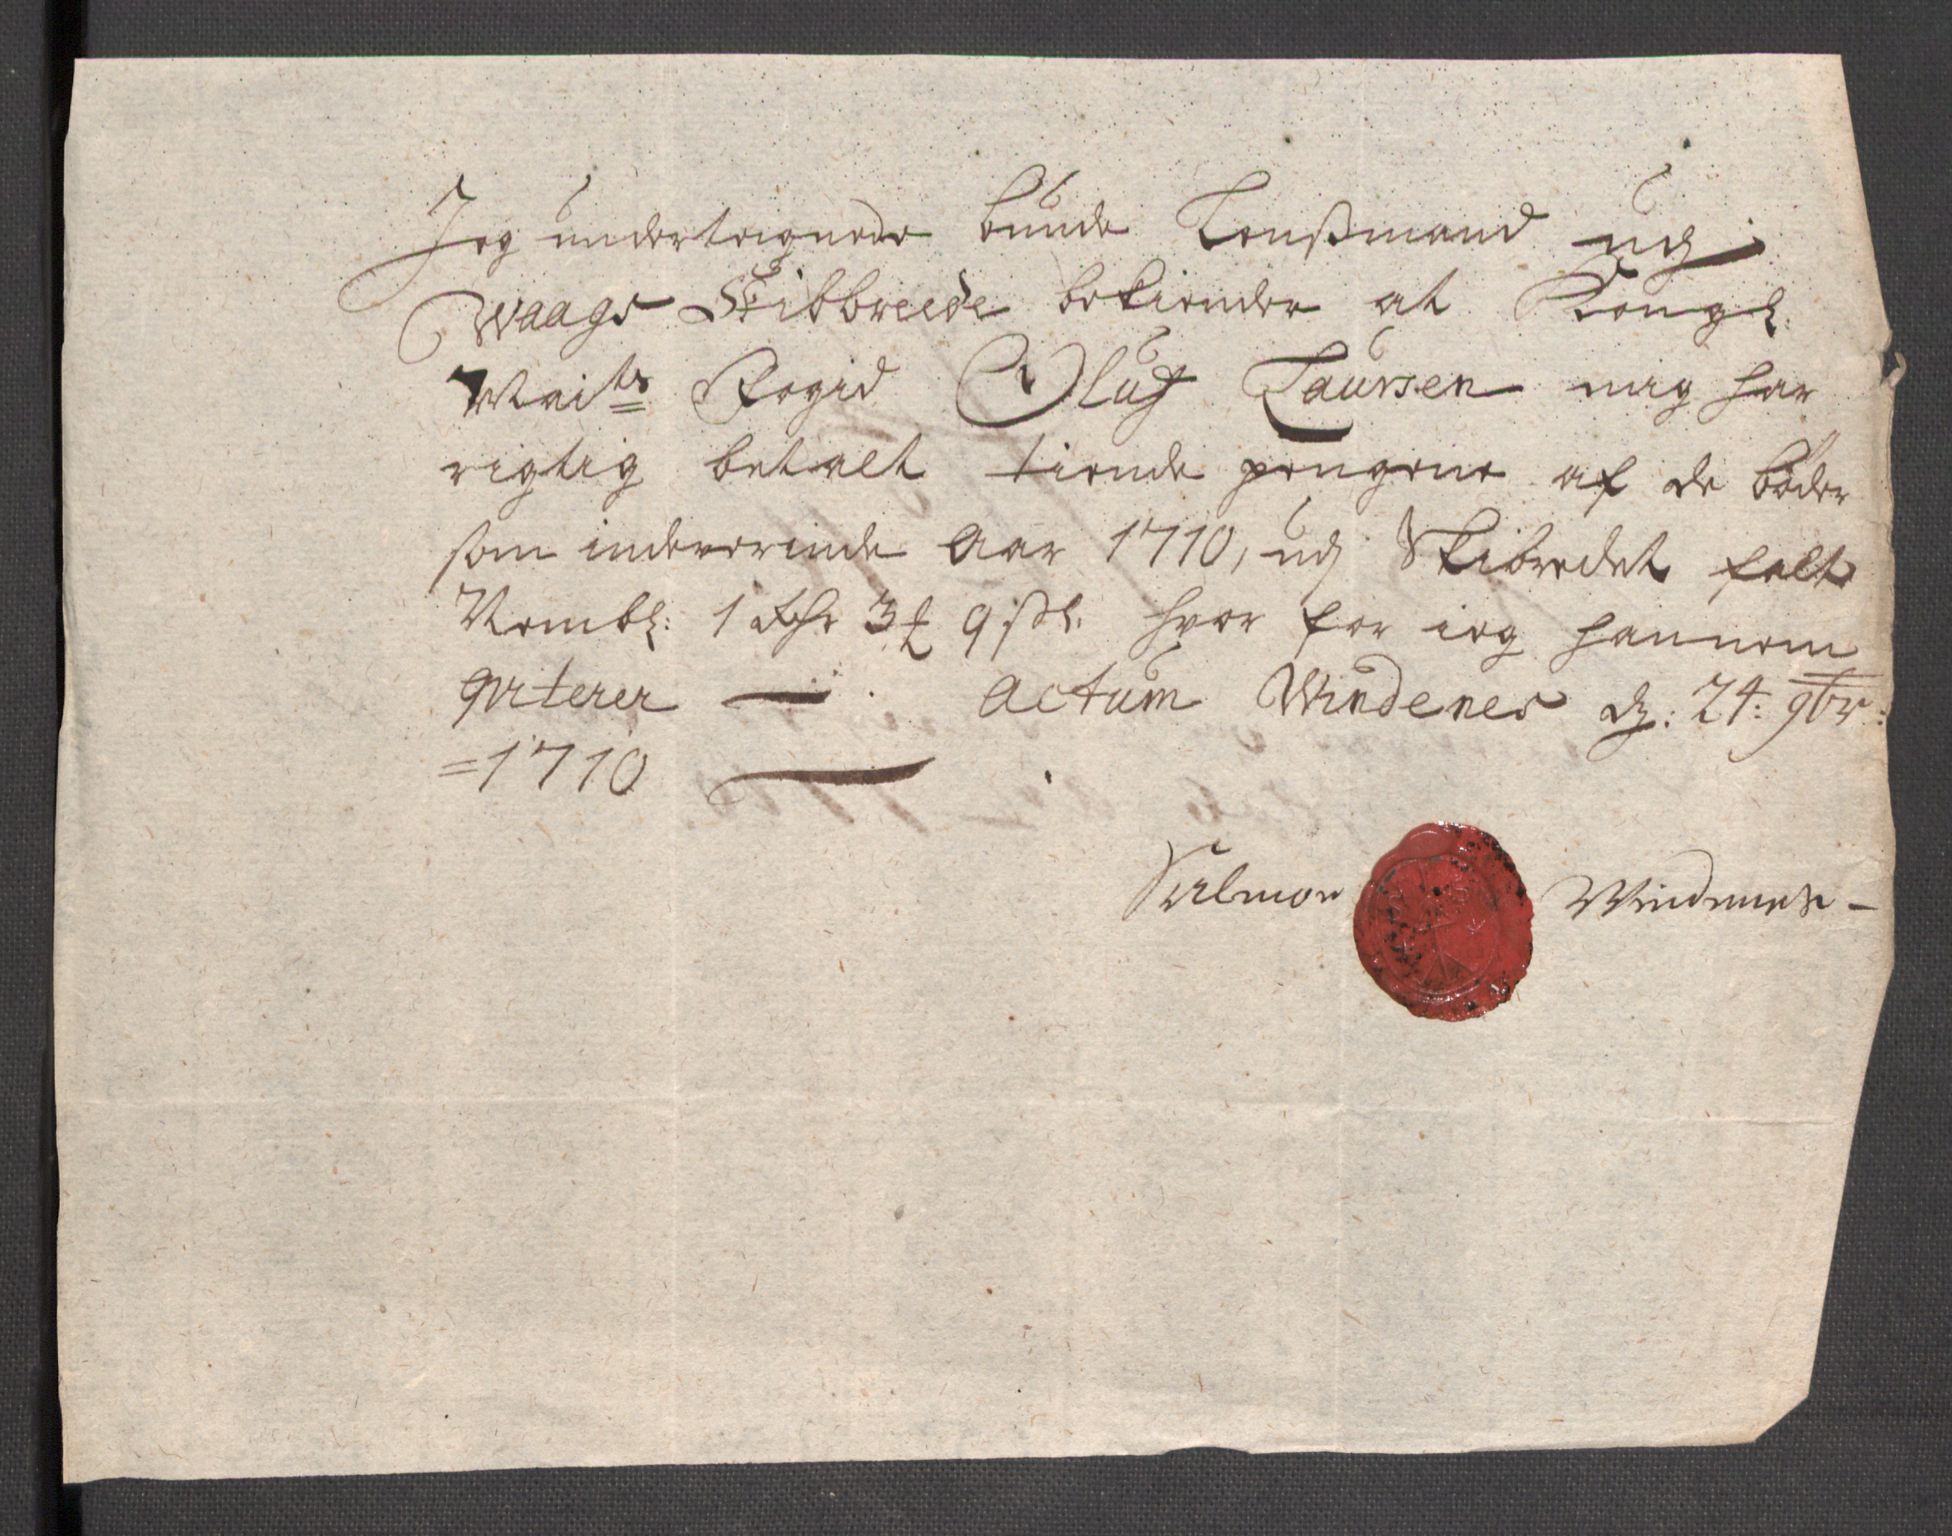 Jeg undertegnede bunde Lensßmand udj
Waags Skibbreede bekiender at Kongl:
Maits Fogid Oluf Laursen mig har
rigtig betalt tiende pengene af de bøder
som indeverende Aar 1710, udj Skibredet falt
Nembl: 1 Rdr 3 ₤ 9 ßl. hvor for ieg hannem
qviterer — . Actum Windenes d: 24: 9br:
=1710 —
Salmon Windenes –